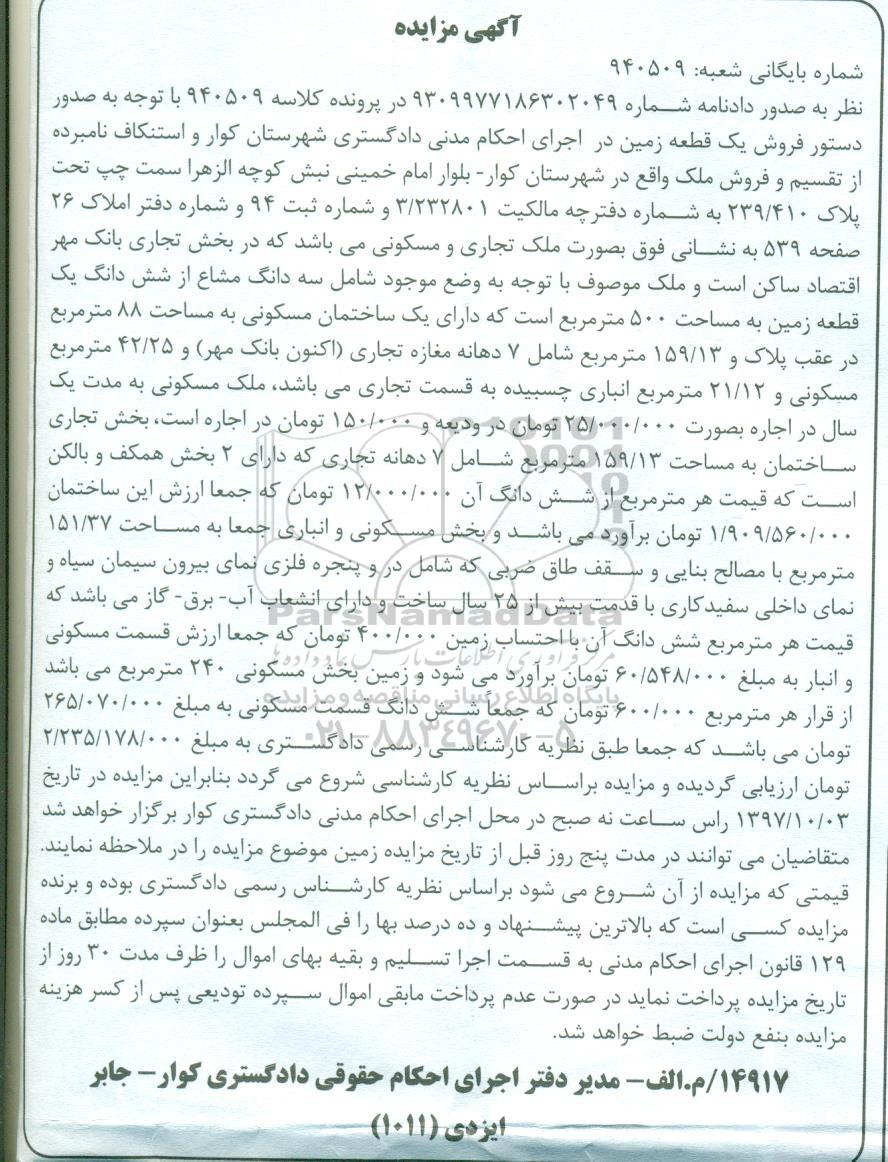 آگهی مزایده
شماره بایگانی شعبه: ۹۴۰۵۰۹
نظر به صدور دادنامه شماره ۹۳۰۹۹۷۷۱۸۶۳۰۲۰۴۹ در پرونده کلاسه ۹۴۰۵۰۹ با توجه به صدور
دستور فروش یک قطعه زمین در اجرای احکام مدنی دادگستری شهرستان کوار و استنکاف نامبرده
از تقسیم و فروش ملک واقع در شهرستان کوار- بلوار امام خمینی نبش کوچه الزهرا سمت چپ تحت
پلاک ۲۳۹/۴۱۰ به شماره دفترچه مالکیت ۳/۲۳۲۸۰۱ و شماره ثبت ۹۴ و شماره دفتر املاک ۲۶
صفحه ۵۳۹ به نشانی فوق بصورت ملک تجاری و مسکونی می باشد که در بخش تجاری بانک مهر
اقتصاد ساکن است و ملک موصوف با توجه به وضع موجود شامل سه دانگ مشاع از شش دانگ یک
قطعه زمین به مساحت ۵۰۰ مترمربع است که دارای یک ساختمان مسکونی به مساحت ۸۸ مترمربع
در عقب پلاک و ۱۵۹/۱۳ مترمربع شامل ۷ دهانه مغازه تجاری (اکنون بانک مهر) و ۴۲/۲۵ مترمربع
مسکونی و ۲۱/۱۲ مترمربع انباری چسبیده به قسمت تجاری می باشد، ملک مسکونی به مدت یک
سال در اجاره بصورت ۲۵/۰۰۰/۰۰۰ تومان در ودیعه و ۱۵۰/۰۰۰ تومان در اجاره است، بخش تجاری
ساختمان به مساحت ۱۵۹/۱۳ مترمربع شامل ۷ دهانه تجاری که دارای ۲ بخش همکف و بالکن
است که قیمت هر مترمربع از شش دانگ آن ۱۲/۰۰۰/۰۰۰ تومان که جمعا ارزش این ساختمان
۱/۹۰۹/۵۶۰/۰۰۰ تومان برآورد می باشد و بخش مسکونی و انباری جمعا به مساحت ۱۵۱/۳۷
مترمربع با مصالح بنایی و سقف طاق ضربی که شامل در و پنجره فلزی نمای بیرون سیمان سیاه و
نمای داخلی سفیدکاری با قدمت بیش از ۲۵ سال ساخت و دارای انشعاب آب- برق- گاز می باشد که
قیمت هر مترمربع شش دانگ آن با احتساب زمین ۴۰۰/۰۰۰ تومان که جمعا ارزش قسمت مسکونی
و انبار به مبلغ ۶۰/۵۴۸/۰۰۰ تومان برآورد می شود و زمین بخش مسکونی ۲۴۰ مترمربع می باشد
از قرار هر مترمربع ۶۰۰/۰۰۰ تومان که جمعاً شش دانگ قسمت مسکونی به مبلغ ۲۶۵/۰۷۰/۰۰۰
تومان می باشد که جمعا طبق نظریه کارشناسی رسمی دادگستری به مبلغ ۲/۲۳۵/۱۷۸/۰۰۰
تومان ارزیابی گردیده و مزایده براساس نظریه کارشناسی شروع می گردد بنابراین مزایده در تاریخ
۱۳۹۷/۱۰/۰۳ راس ساعت نه صبح در محل اجرای احکام مدنی دادگستری کوار برگزار خواهد شد
متقاضیان می توانند در مدت پنج روز قبل از تاریخ مزایده زمین موضوع مزایده را در ملاحظه نمایند.
قیمتی که مزایده از آن شروع می شود براساس نظریه کارشناس رسمی دادگستری بوده و برنده
مزایده کسی است که بالاترین پیشنهاد و ده درصد بها را فی المجلس بعنوان سپرده مطابق ماده
۱۲۹ قانون اجرای احکام مدنی به قسمت اجرا تسلیم و بقیه بهای اموال را ظرف مدت ۳۰ روز از
تاریخ مزایده پرداخت نماید در صورت عدم پرداخت مابقی اموال سپرده تودیعی پس از کسر هزینه
مزایده بنفع دولت ضبط خواهد شد.
۱۴۹۱۷/م.الف- مدیر دفتر اجرای احکام حقوقی دادگستری کوار- جابر
ایزدی (۱۰۱۱)
ParsNamadData
مرکز فرآوری اطلاعات پارس نماد داده ها
پایگاه اطلاع رسانی مناقصه و مزایده
۰۲۱-۸۸۳۴۹۶۷۰-۵